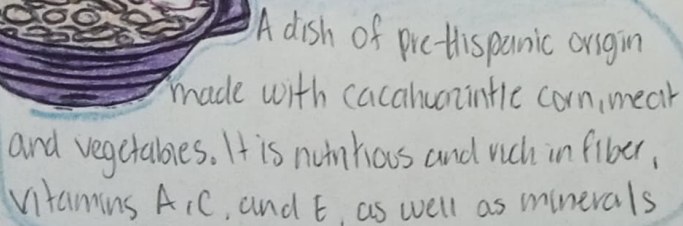 A dish of pre-Hispanic origin
made with cacahuazintle corn, meat
and vegetables. It is nutritious and rich in fiber,
vitamins A, C, and E, as well as minerals